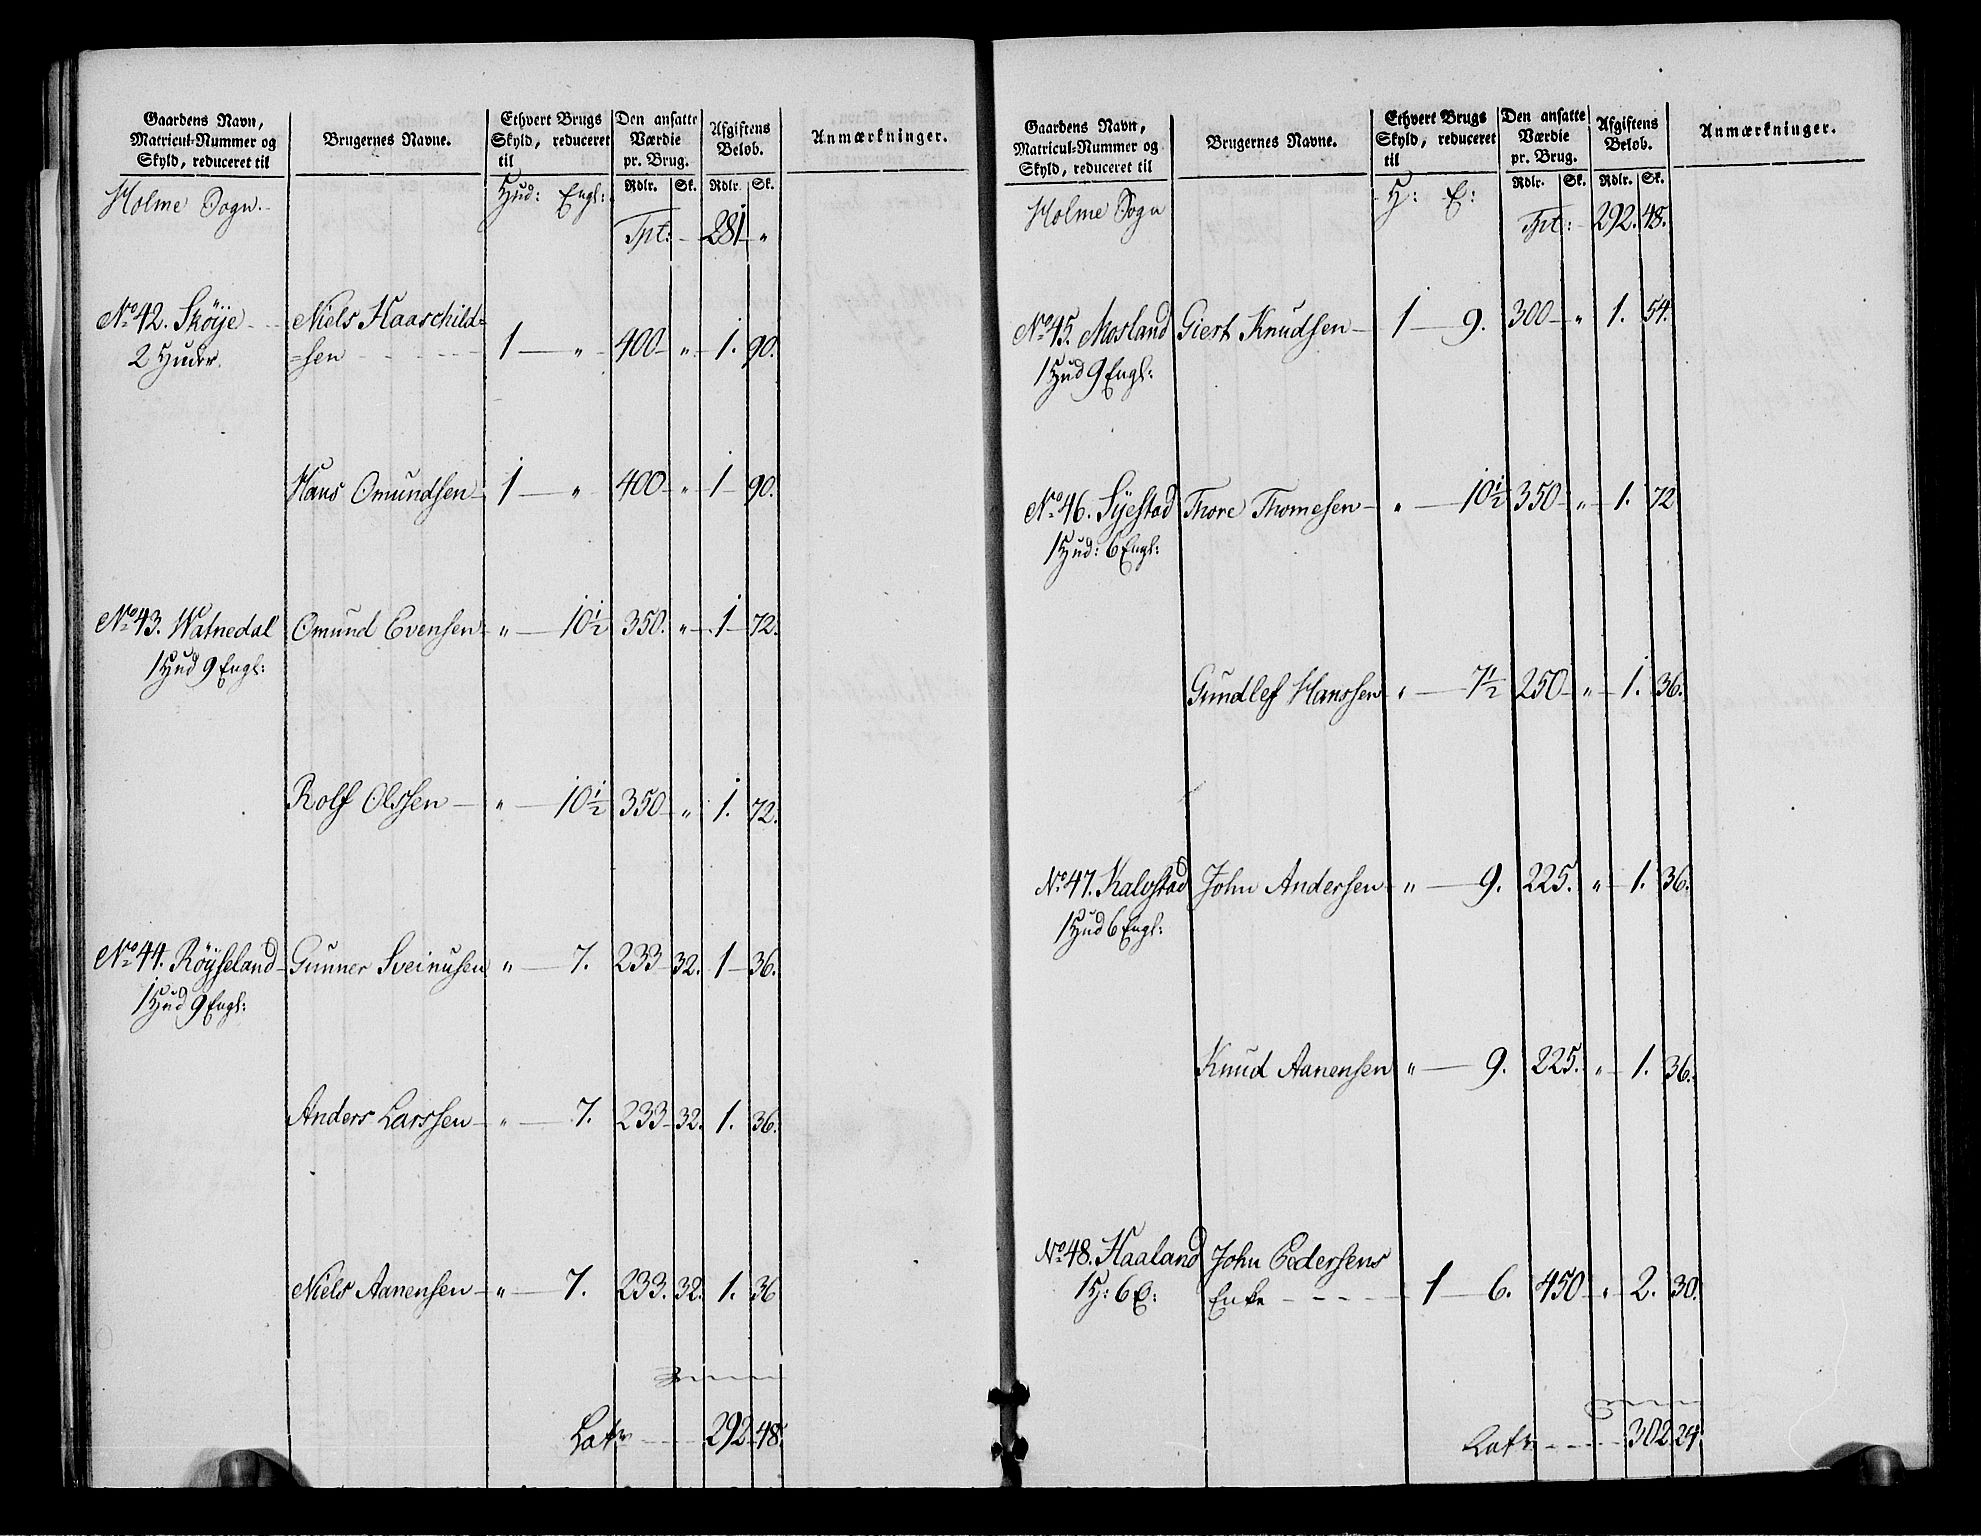 Gaardens Navn, Matricul-Nummer og Skyld, reduceret til | Brugernes Navne. | Ethvert Brugs Skyld, reduceret til | Den ansatte Værdie pr. Brug. | Afgiftens Beløb. | Anmærkninger.
Rdlr. | Sk. | Rdlr. | Sk.
Holme Sogn. | Hud: Engl:
Tpt: 281 "
No 42. Skøÿe - Niels Haaschild=
2 Huder. =sen 1 — " 400 " 1. 90.
Hans Omundsen 1 — " 400 " 1 90.
No 43. Watnedal Omund Evensen " — 10½ 350. " 1 72.
1 Hud 9 Engl:
Rolf Olssen — " — 10½ 350 " 1. 72.
No 44. Røÿseland Gunner Sveinusen " — 7. 233 32. 1 36.
1 Hud 9 Engl:
Anders Larssen " — 7. 233 32. 1. 36.
Niels Aanensen " — 7. 233. 32. 1. 36
Latr 292 48.
Gaardens Navn, Matricul-Nummer og Skyld, reduceret til | Brugernes Navne. | Ethvert Brugs Skyld, reduceret til | Den ansatte Værdie pr. Brug. | Afgiftens Beløb. | Anmærkninger.
Rdlr. | Sk. | Rdlr. | Sk.
Holme Sogn | H: E:
Tpt: 292. 48.
No 45. Mosland Giert Knudsen 1 — 9. 300 " 1. 54.
1 Hud 9 Engl:
No 46. Sÿestad Thore Thomesen " — 10½ 350 " 1. 72
1 Hud: 6 Engl:
Gundlef Hanssen " — 7½ 250 " 1. 36.
No 47. Kalvstad John Andersen " — 9. 225. " 1. 36.
1 Hud 6 Engl:
Knud Aanensen " — 9. 225. " 1. 36.
No 48. Haaland John Pedersens
1 H: 6 E: Enke 1 — 6. 450 " 2. 30.
Latr 302 24.